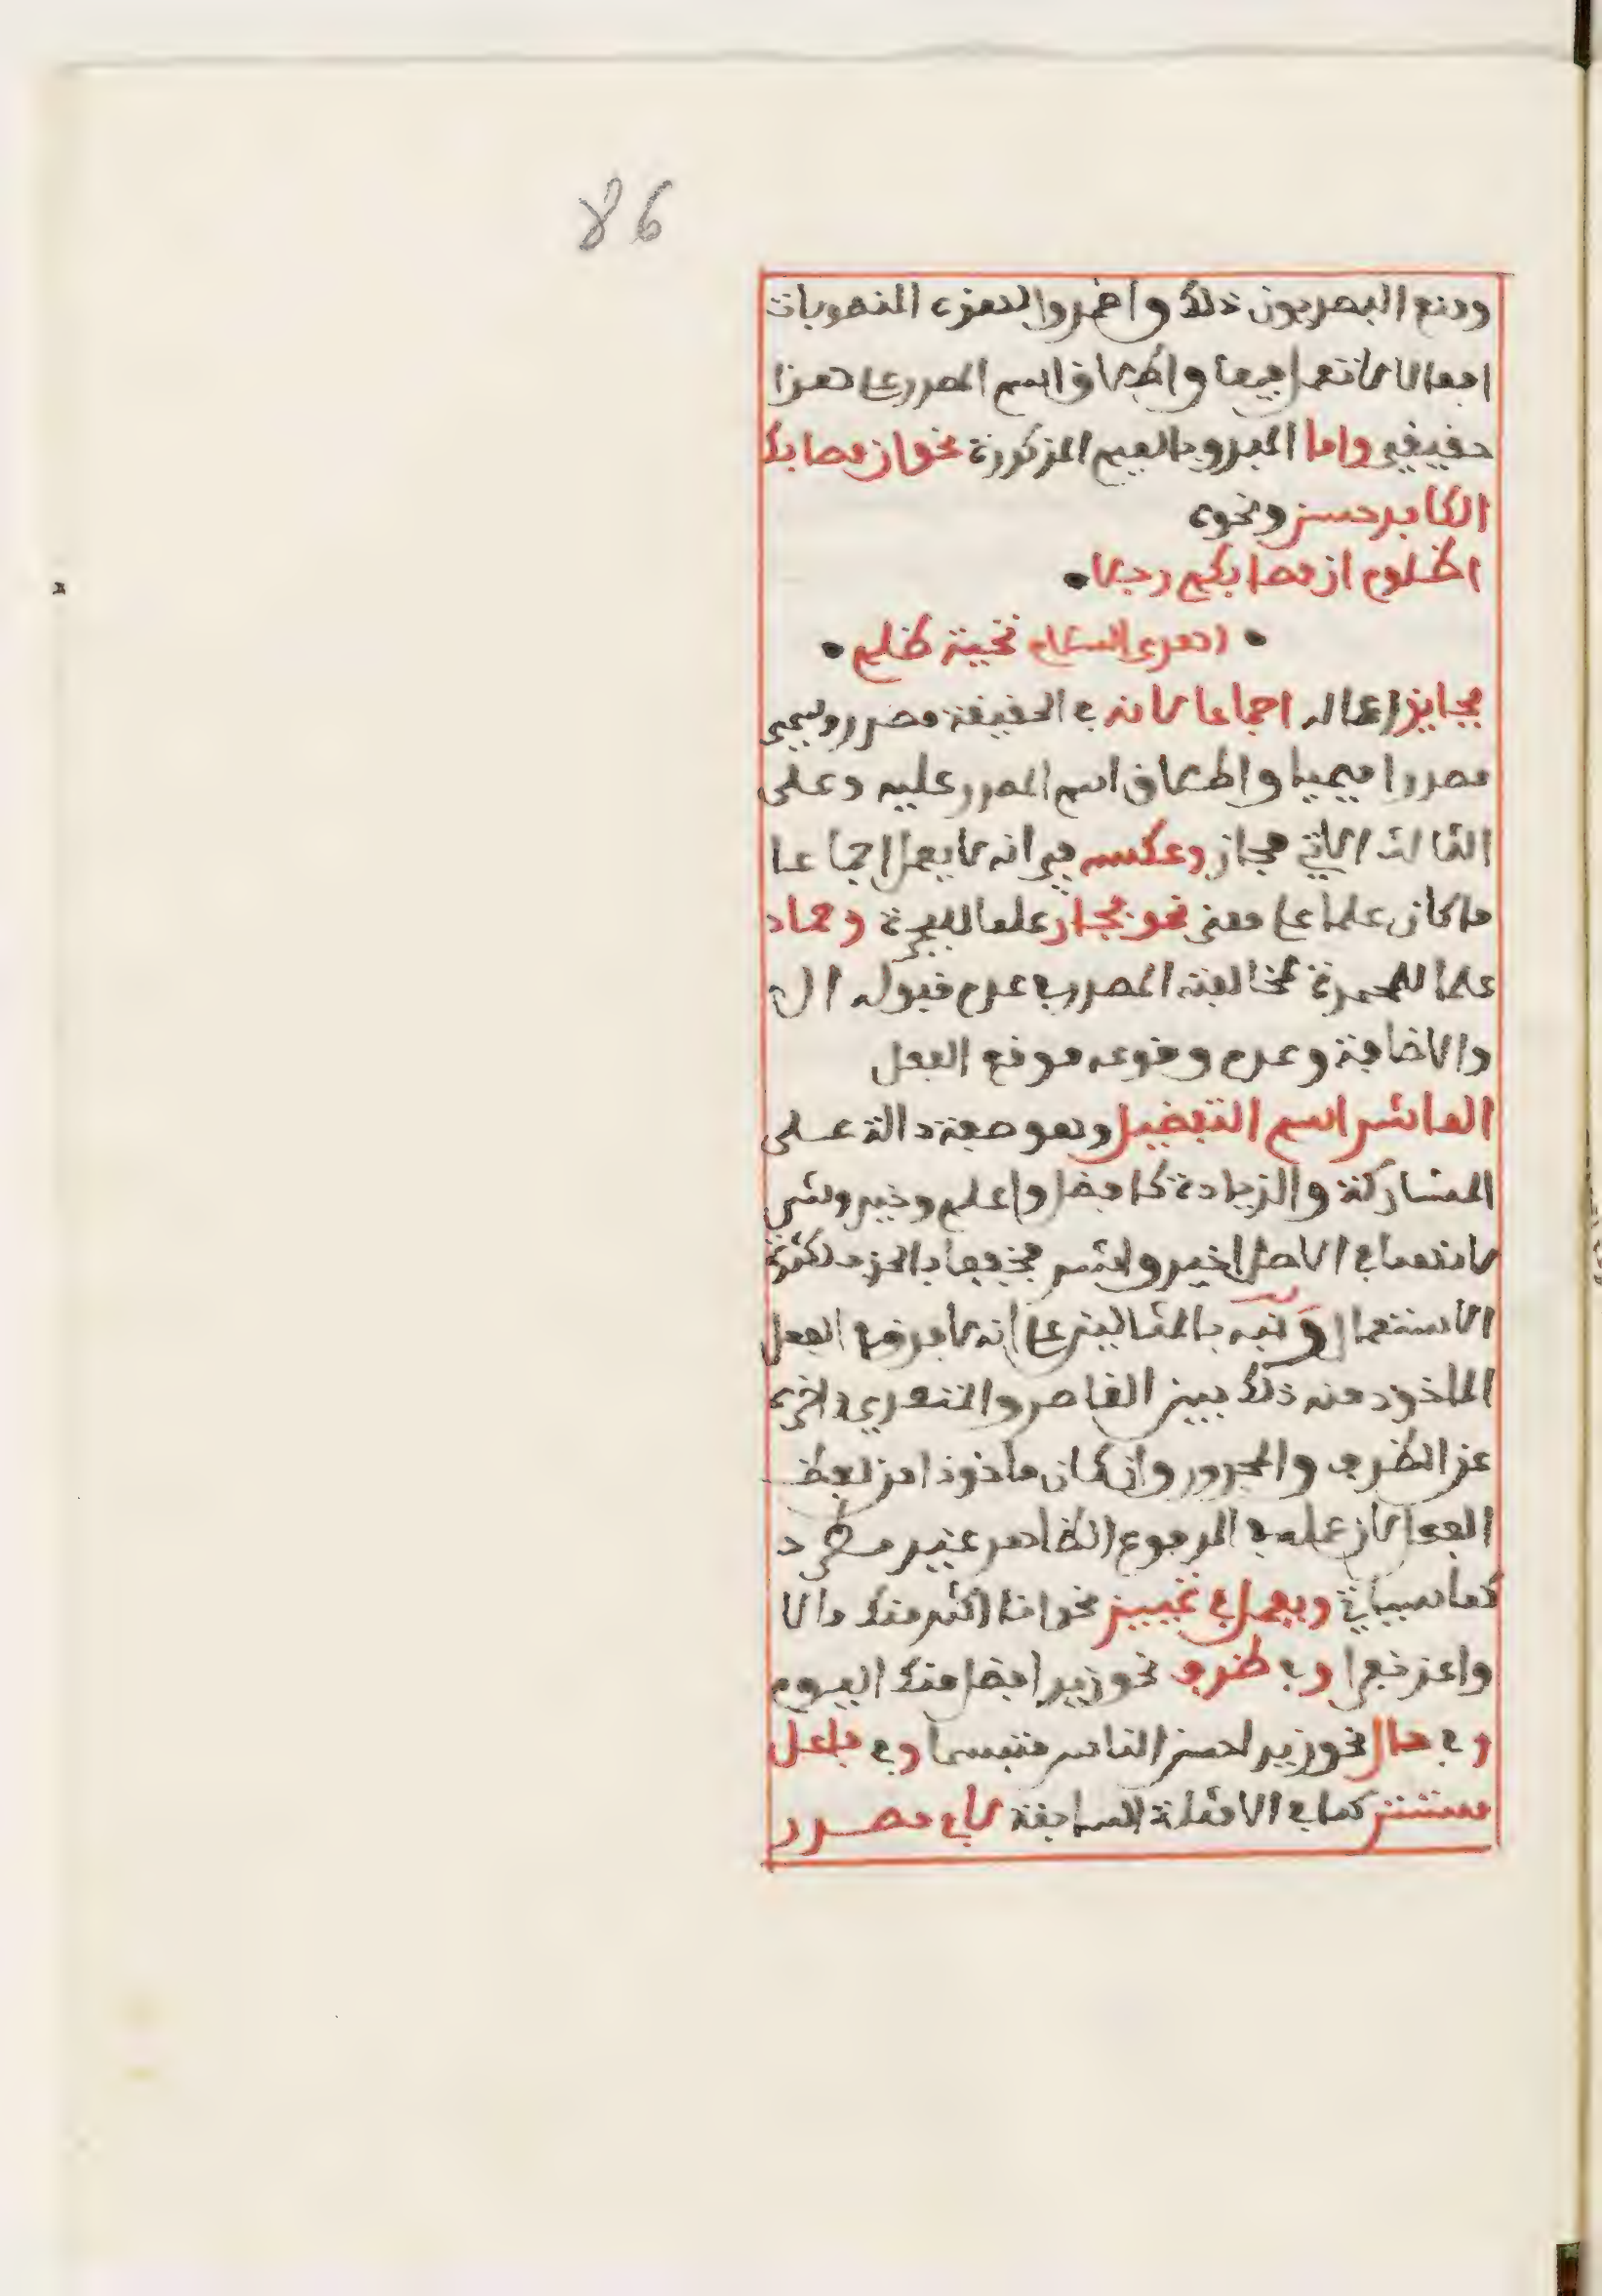 86
ومنع البصريون ذلك واضمروا لهذه المنصوبات
افعالا لانتصابها واطلاق اسم المصدر على هذا
حقيقي واما المبدوء بالميم المزكورة نحو ان مصابك
الكافر حسن ونحوه
اظلوم ان مصابكم رجلا
اهدى السلام تحية ظلم
فجايز اعماله اجماعا لانه في الحقيقة مصدر ويسمى
مصدرا ميميا واطلاق اسم المصدر عليه وعلى
الثالث الاتي مجاز وعكسه في انه لا يعمل اجماعا
ما كان علما على معنى نحو فجار علما للفجرة وحماد
علما للمحمدة لمخالفته المصدر في عدم قبوله ال
والاضافة وعدم وقوعه موقع الفعل
العاشر اسم التفضيل وهو صفة دالة على
المشاركة والزيادة كافضل واعلم وخير وشر
لانهما في الاصل اخير واشر فخففا بالحذف لكثرة
الاستعمال ونبه بالمثالين على انه لا فرق في الفعل
الماخوذ منه ذلك بين القاصر والمتعدي واخره
عن الظرف والمجرور وان كان ماخوذا من لفظ
الفعل لان عمله في المرفوع الظاهر غير مطرد
كما سياتي ويعمل في تمييز نحو انا اكثر منك مالا
واعز نفرا وفي ظرف نحو زيد افضل منك اليوم
وفي حال نحو زيد احسن الناس متبسما وفي فاعل
مستتر كما في الامثلة السابقة لا في مصدر